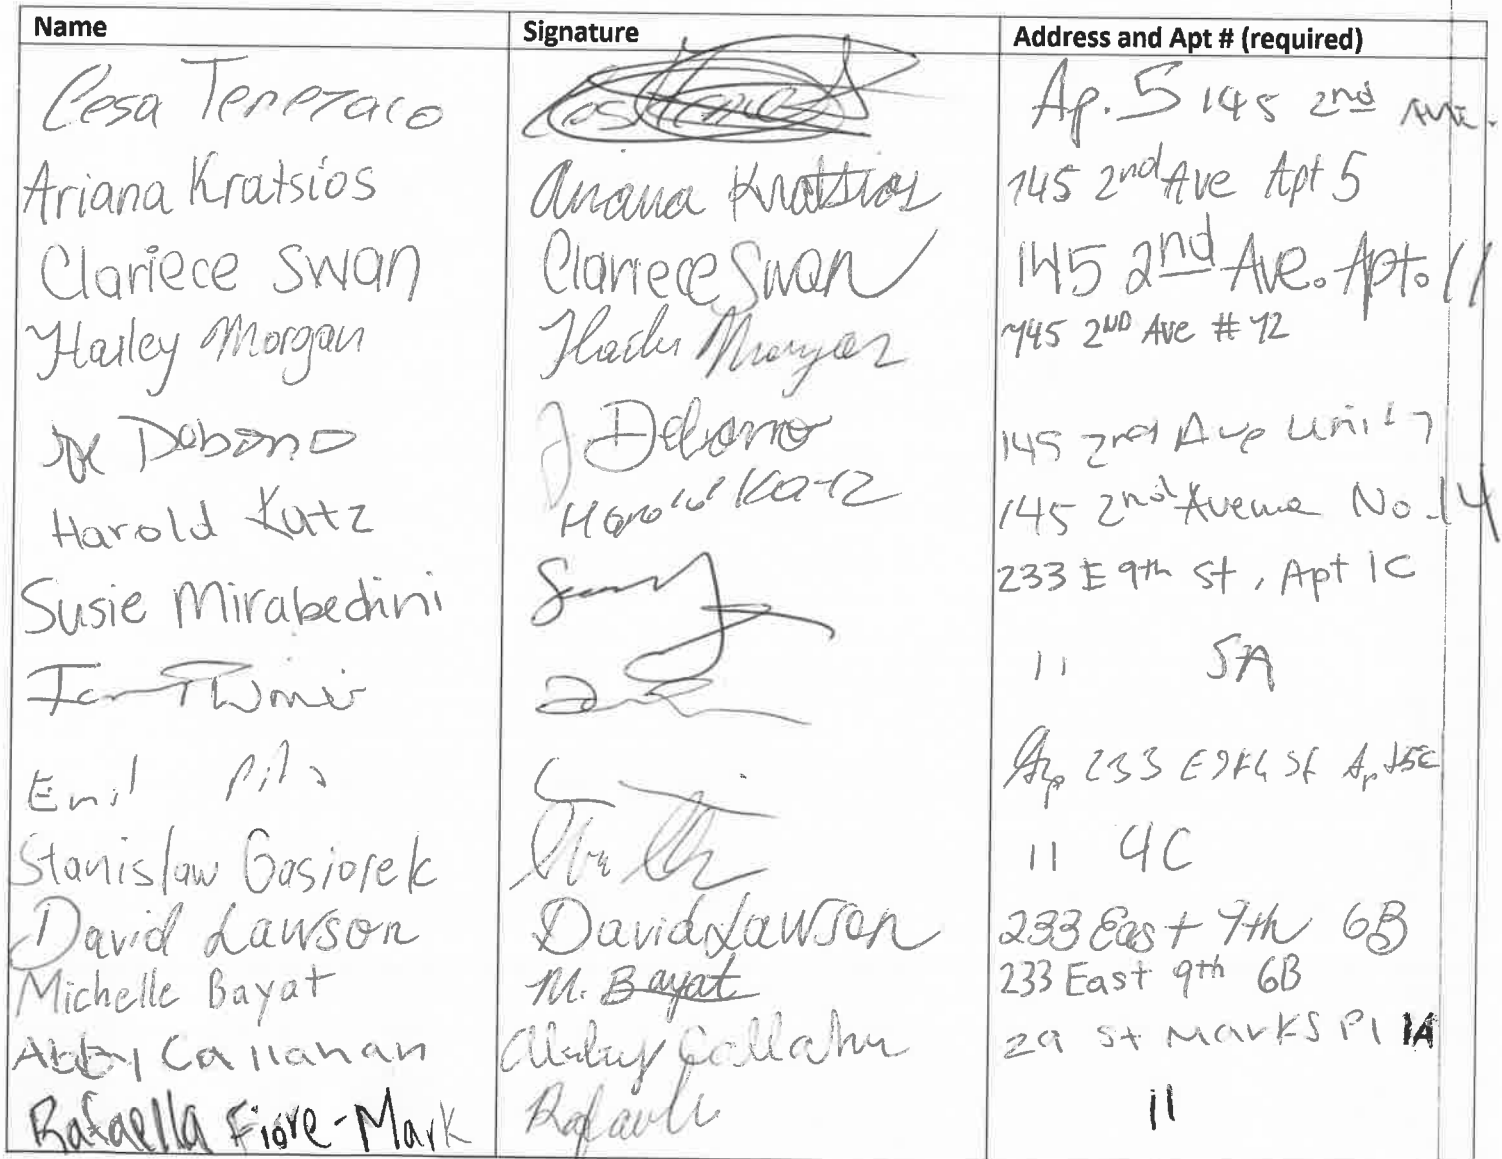 Name Signature Address and Apt # (required)
Cesa Tenezaco Ap. 5 145 2nd Ave.
Ariana Kratsios Ariana Kratsios 145 2nd Ave Apt 5
Clariece Swan Clariece Swan 145 2nd Ave. Apt. 11
Hailey Morgan Hailey Morgan 145 2ND Ave # 12
Joe Debono J Debono 145 2nd Ave Unit 7
Harold Katz Harold Katz 145 2nd Avenue No. 14
Susie Mirabedini 233 E 9th St, Apt 1C
Ian 11 5A
Emil Ap 233 E 9th St Apt 5E
Stanislaw Gasiorek 11 4C
David Lawson David Lawson 233 East 9th 6B
Michelle Bayat M. Bayat 233 East 9th 6B
Abby Callahan Abby Callahan 29 St Marks Pl 1A
Rafaella Fiore-Mark Rafaella 11